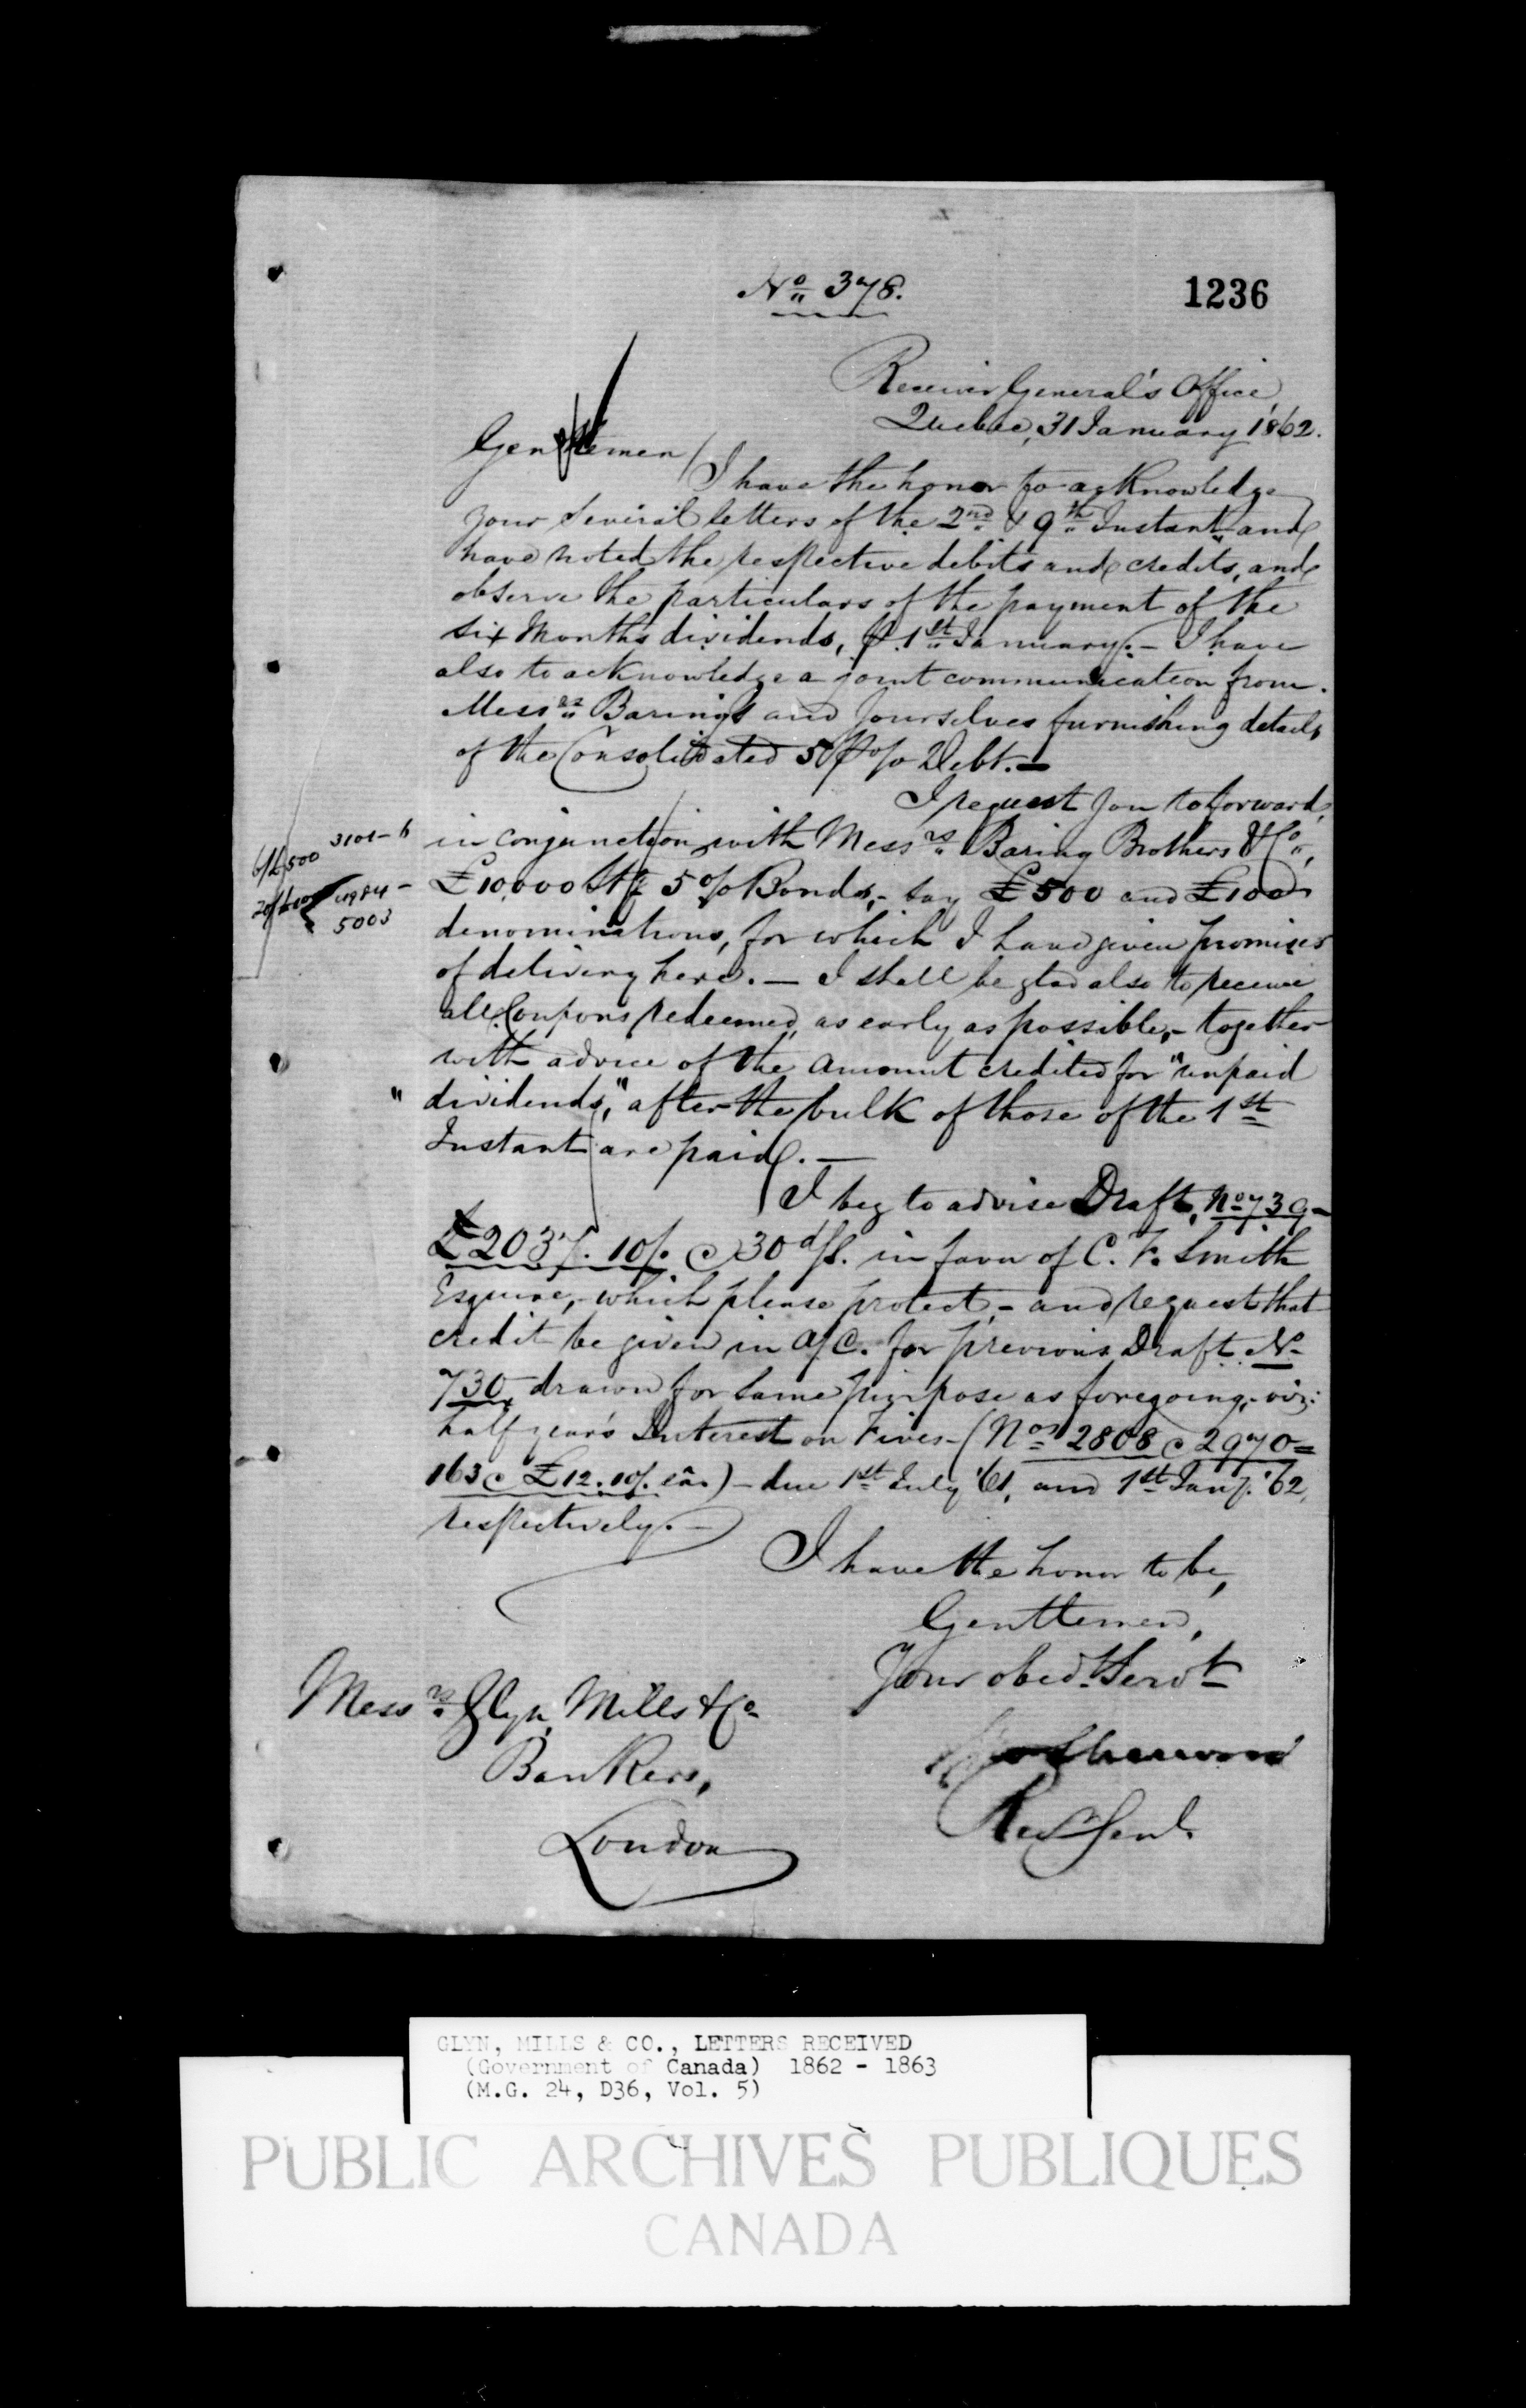 No 378.
1236
Receiver General's Office
Quebec, 31 January 1862.
Gentlemen
I have the honor to acknowledge
your several letters of the 2nd & 9th Instant and
have noted the respective debits and credits, and
observe the particulars of the payment of the
six Months dividends, p. 1st January. - I have
also to acknowledge a joint communication from
Messrs Barings and yourselves furnishing details
of the Consolidated 5 p% Debt. -
I request you to forward,
in conjunction with Messrs Baring Brothers & Co,
£10,000 Stg 5% Bonds, - say £500 and £100
denominations, for which I have given promises
of delivery here. - I shall be glad also to receive
all Coupons redeemed, as early as possible, - together
with advice of the amount credited for "unpaid
" dividends," after the bulk of those of the 1st
Instant are paid. -
3101-6
6/£500
20/£100 4984-
5003
I beg to advise Draft, No 739 -
£2037. 10/. @ 30 d/s. in favor of C. F. Smith
Esquire, - which please protect, - and request that
credit be given in a/c. for previous Draft No
730 drawn for same purpose as foregoing, - viz:
half year's Interest on Fives - (Nos 2808 @ 2970 =
163 @ £12.10/. ea.) - due 1st July '61, and 1st Jany. '62,
respectively. -
I have the honor to be,
Gentlemen,
Your obedt Servt
Sherwood
Rec Genl.
Messrs Glyn, Mills & Co
Bankers,
London
GLYN, MILLS & CO., LETTERS RECEIVED
(Government of Canada) 1862 - 1863
(M.G. 24, D36, Vol. 5)
PUBLIC ARCHIVES PUBLIQUES
CANADA